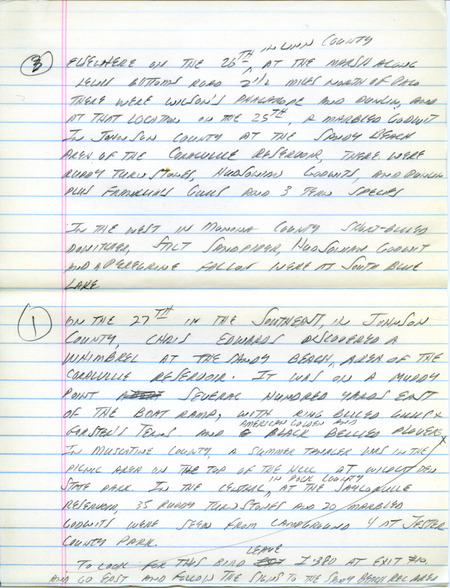 IN LINN COUNTY
③ ELSEWHERE ON THE 26TH, AT THE MARSH ALONG
LEWIS BOTTOMS ROAD 2 1/2 MILES NORTH OF PALO
THERE WERE WILSON'S PHALAROPE AND DUNLIN, AND
AT THAT LOCATION ON THE 25TH, A MARBLED GODWIT
IN JOHNSON COUNTY AT THE SANDY BEACH
AREA OF THE CORALVILLE RESERVOIR, THERE WERE
RUDDY TURNSTONES, HUDSONIAN GODWITS, AND DUNLIN
PLUS FRANKLINS GULLS AND 3 TERN SPECIES
IN THE WEST IN MONONA COUNTY SHORT-BILLED
DOWITCHER, STILT SANDPIPER, HUDSONIAN GODWIT
AND A PEREGRINE FALCON WERE AT SOUTH BLUE
LAKE
① ON THE 27TH IN THE SOUTHEAST, IN JOHNSON
COUNTY, CHRIS EDWARDS DISCOVERED A
WHIMBREL AT THE SANDY BEACH, AREA OF THE
CORALVILLE RESERVOIR. IT WAS ON A MUDDY
POINT SEVERAL HUNDRED YARDS EAST
OF THE BOAT RAMP, WITH RING BILLED GULLS
AMERICAN GOLDEN AND
FORSTER'S TERNS AND BLACK BELLIED PLOVER
IN MUSCATINE COUNTY, A SUMMER TANAGER WAS IN THE
PICNIC AREA ON THE TOP OF THE HILL AT WILDCAT DEN
IN POLK COUNTY
STATE PARK. IN THE CENTRAL, AT THE SAYLORVILLE
RESERVOIR, 35 RUDDY TURNSTONES AND 20 MARBLED
GODWITS WERE SEEN FROM CAMPGROUND 4 AT JESTER
COUNTY PARK.
LEAVE
TO LOOK FOR THIS BIRD I380 AT EXIT
AND GO EAST AND FOLLOW THE SIGNS TO THE SANDY BEACH REC AREA